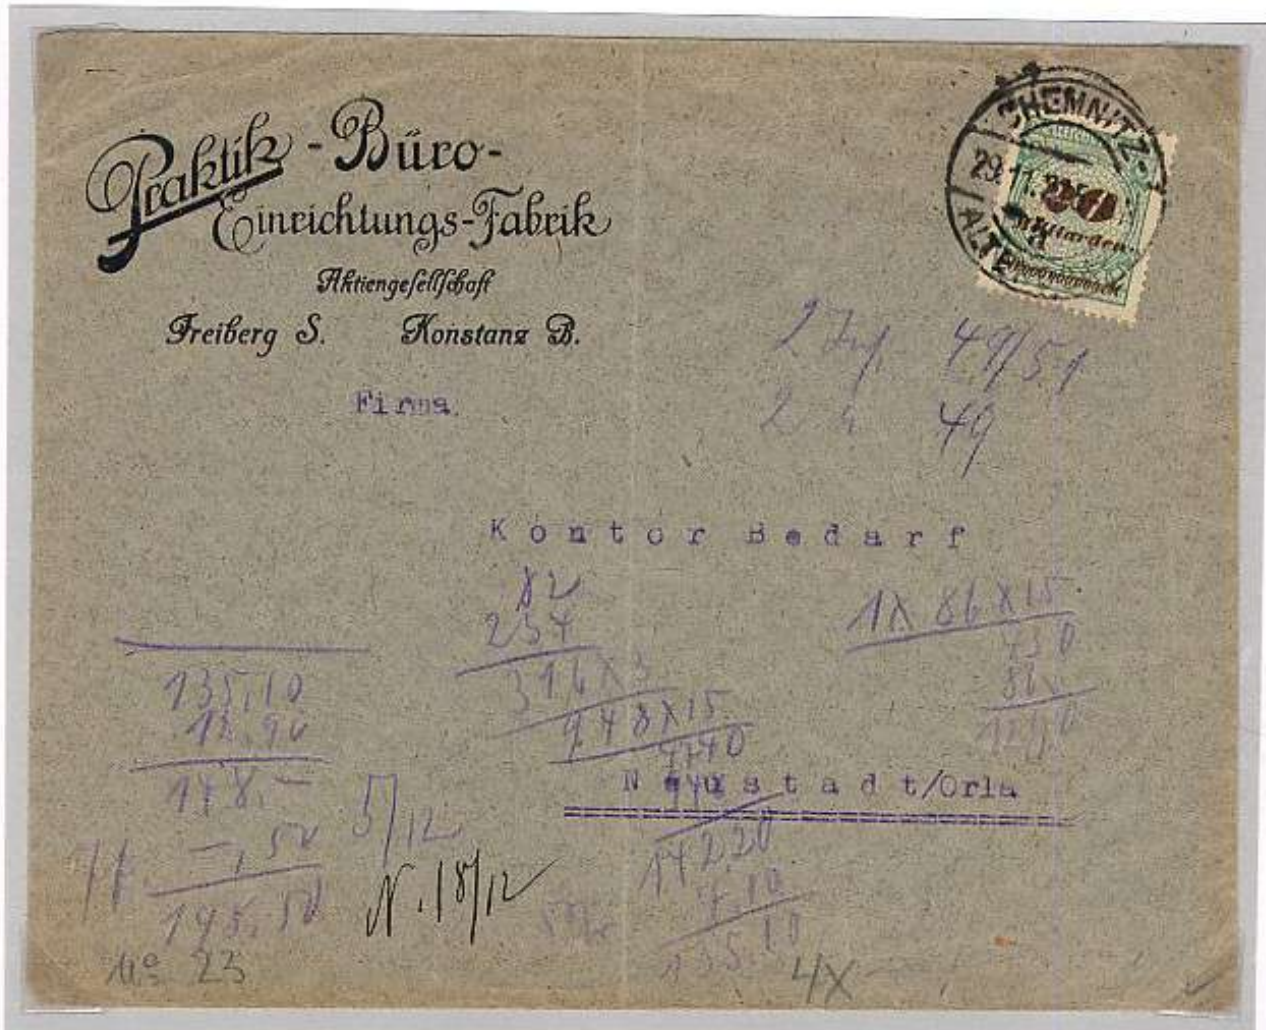 Praktik - Büro-
Einrichtungs-Fabrik
Aktiengesellschaft
Freiberg S. Konstanz B.
CHEMNITZ-
29.11.23
ALTE
Milliarden
Firma
49/51
2 49
Kontor Bedarf
82
234
316 x 3
948 x 15
4740
1 x 86 x 15
430
86
1290
135,10
12,90
148,-
-,50
5/12
Neustadt/Orla
142,20
7,10
135,10
N. 18/12
23
4x